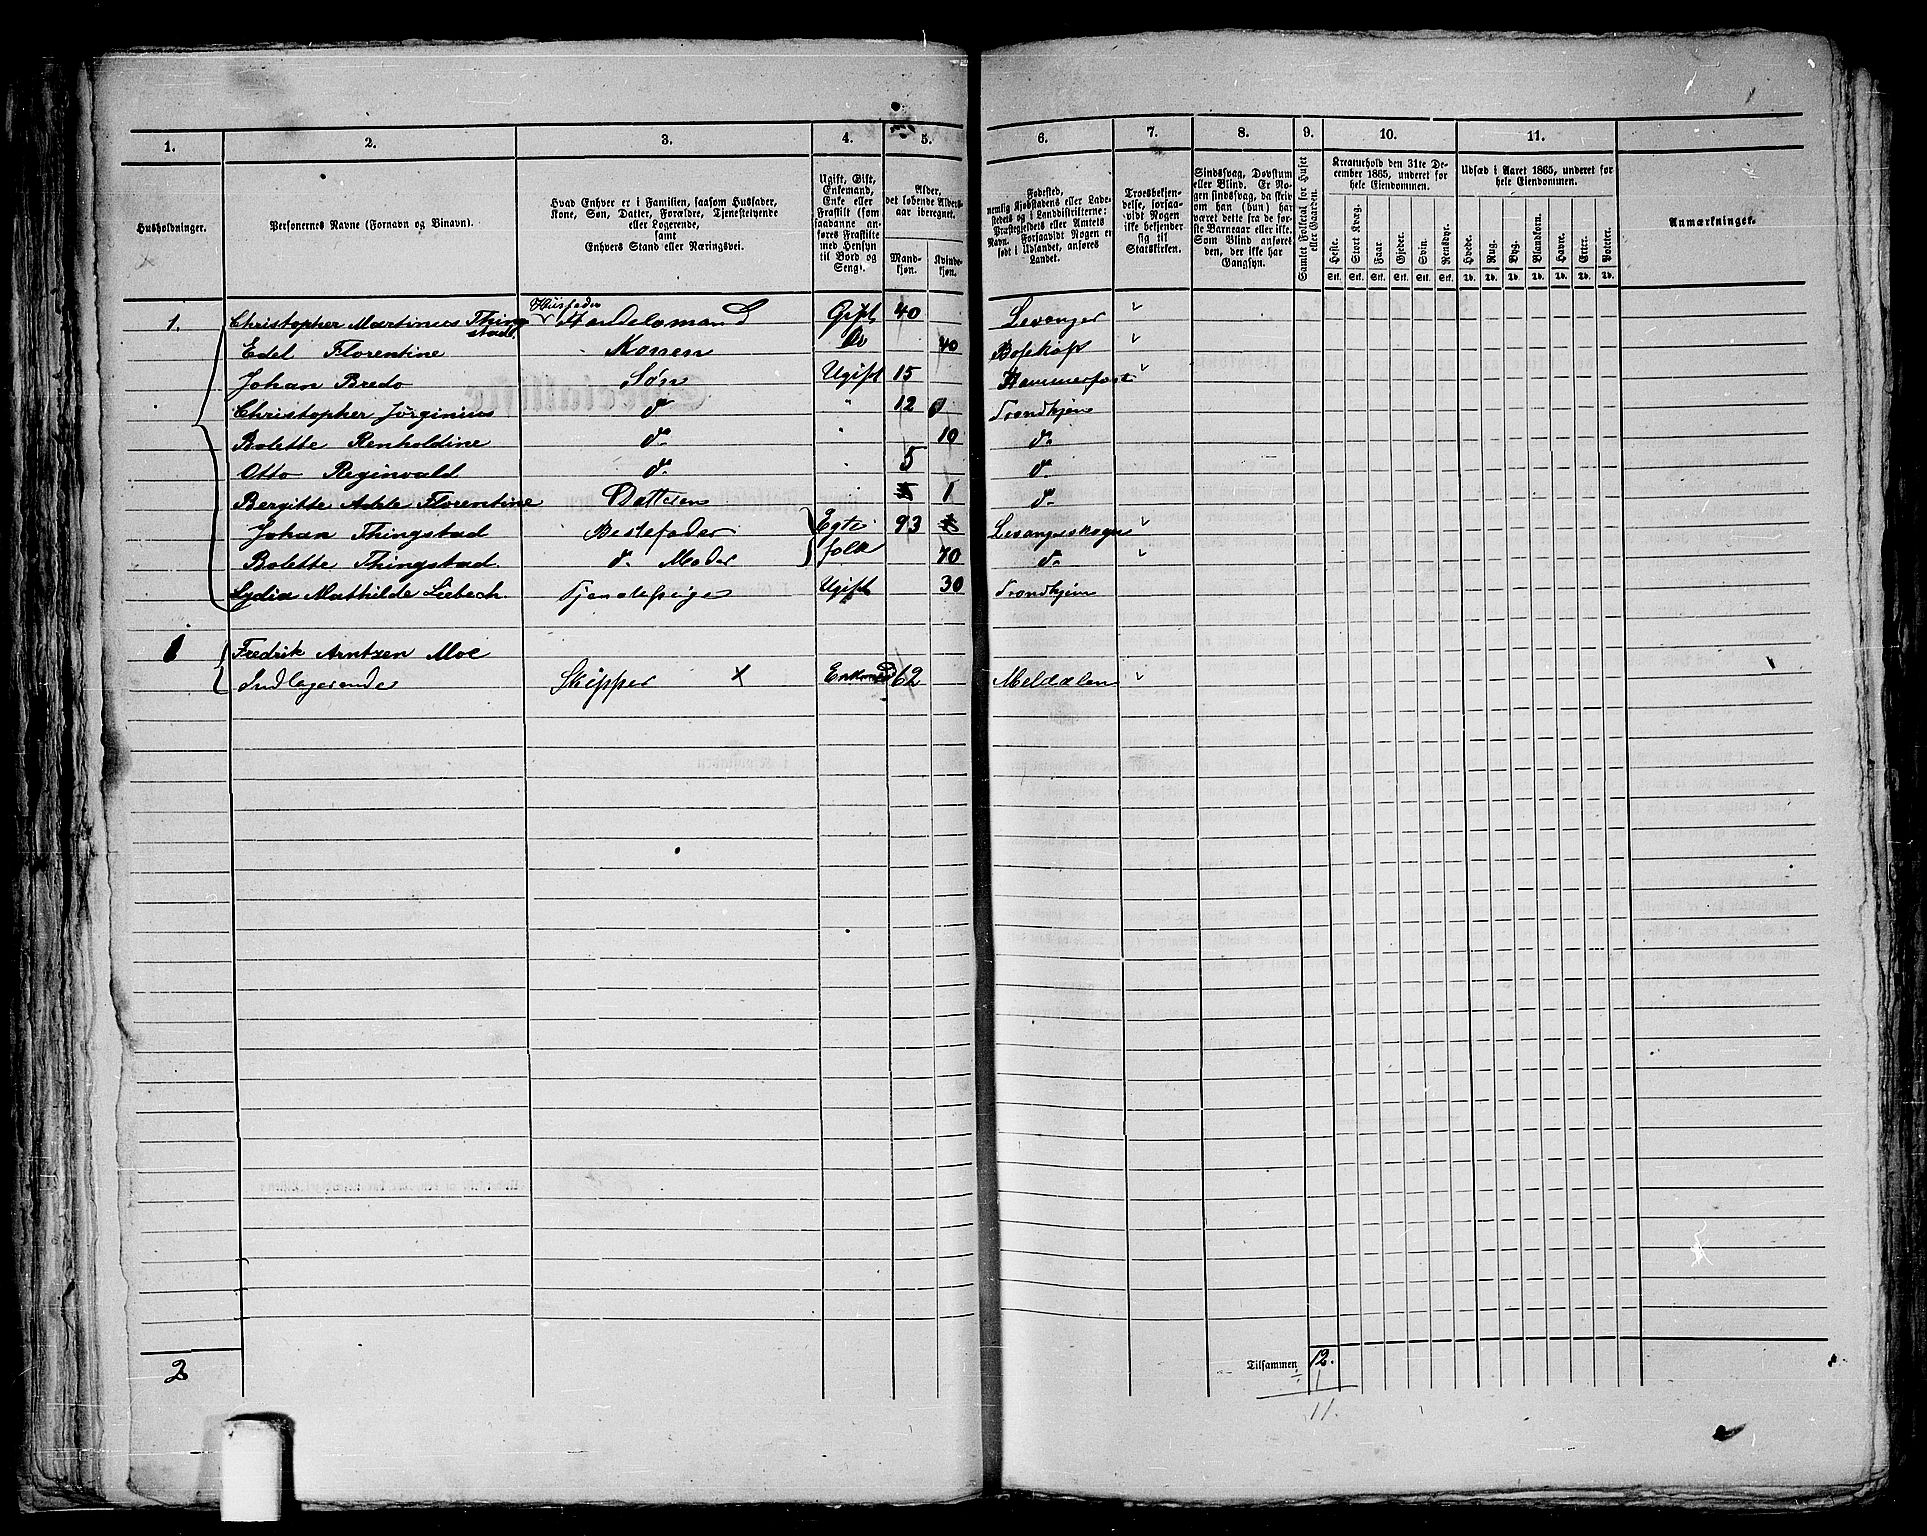 1. 2. 3. 4. 5. 6. 7. 8. 9. 10. 11.
Husholdninger.
Personernes Navne (Fornavn og Binavn).
Hvad Enhver er i Familien, saasom Husfader,
Kone, Søn, Datter, Forældre, Tjenestetyende
eller Logerende,
samt
Enhvers Stand eller Næringsvei.
Ugift, Gift,
Enkemand,
Enke eller
Fraskilt (som
saadanne an-
føres Fraskilte
med Hensyn
til Bord og
Seng).
Alder,
det løbende Alders-
aar iberegnet.
Mand-
kjøn.
Kvinde-
kjøn.
Fødested,
nemlig Kjøbstadens eller Lade-
stedets og i Landdistrikterne:
Præstegjeldets eller Amtets
Navn. Forsaavidt Nogen er
født i Udlandet, anføres
Landet.
Troesbekjen-
delse, forsaa-
vidt Nogen
ikke bekjender
sig til
Statskirken.
Sindssvag, Døvstum
eller Blind. Er No-
gen sindssvag, da skriv
om han (hun) har
været dette fra de før-
ste Barneaar eller ikke.
Som Blind anføres
den, der ikke har
Gangsyn.
Samlet Folketal for Huset
eller Gaarden.
Kreaturhold den 31te De-
cember 1865, underet for
hele Eiendommen.
Heste. Stort Kvæg. Faar. Gjeder. Svin. Rensdyr.
Stk. Stk. Stk. Stk. Stk. Stk.
Udsæd i Aaret 1865, underet for
hele Eiendommen.
Hvede. Rug. Byg. Blandkorn. Havre. Erter. Poteter.
Td. Td. Td. Td. Td. Td. Td.
Anmærkninger.
1. Christopher Martinus Thing- Husfader Handelsmand Gift 40 Levanger
stad.
Edel Florentine Konen Do 40 Bosekop
Johan Bredo Søn Ugift 15 Hammerfest
Christopher Jørginius do " 12 Trondhjem
Bolette Renholdine do " 10 do
Otto Reginvald do " 5 do
Bergitte Adele Florentine Datteren " 1 do
Johan Thingstad Bestefader Egte 93 Levangerskogn
Bolette Thingstad do Moder folk 70 do
Lydia Mathilde Liebech. Tjenestepige Ugift 30 Trondhjem
1 Fredrik Arntzen Moe
Indlogerende Skipper × Enkmd 62 Meldalen
2 Tilsammen 12.
÷ 1
11.